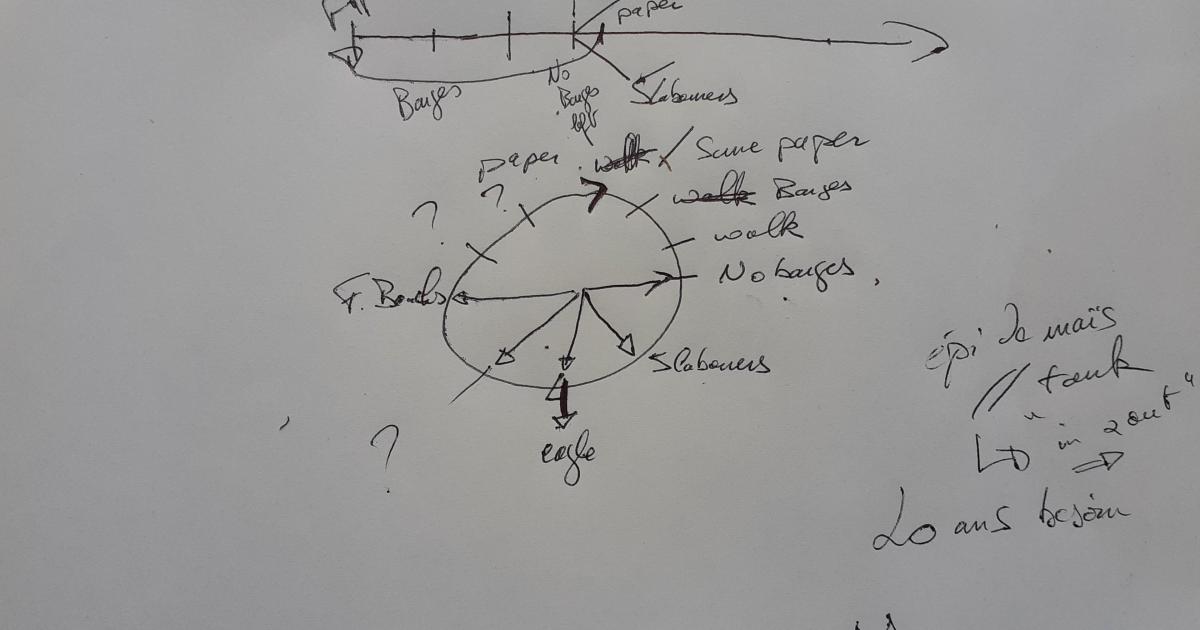 paper
Barges
No
Barges
left
Slabomers
paper walk / Same paper
? ?
walk Barges
walk
No barges,
Slabomers
eagle
?
épi de maïs
// tank
"in zout"
20 ans besoin